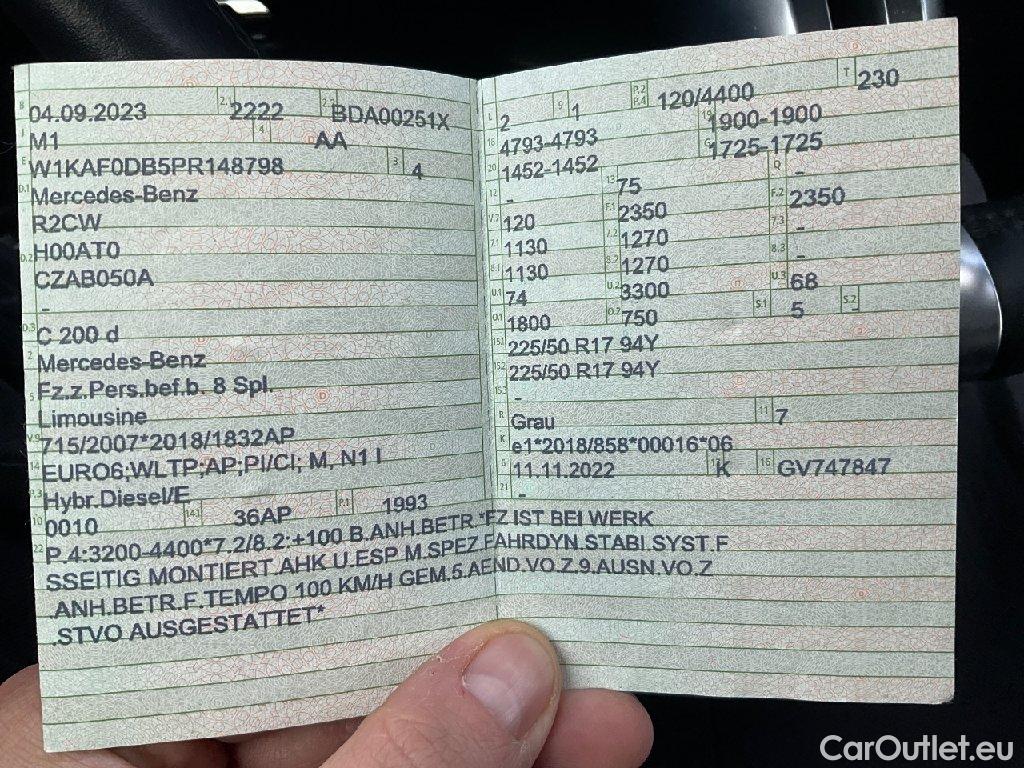 B 04.09.2023 2.1 2222 2.2 BDA00251X
J M1 4 AA
E W1KAF0DB5PR148798 3 4
D.1 Mercedes-Benz
R2CW
D.2 H00AT0
CZAB050A
-
D.3 C 200 d
2 Mercedes-Benz
5 Fz.z.Pers.bef.b. 8 Spl.
Limousine
V.9 715/2007*2018/1832AP
14 EURO6;WLTP;AP;PI/CI; M, N1 I
P.3 Hybr.Diesel/E
10 0010 14.1 36AP P.1 1993
L 2 9 1 P.2 P.4 120/4400 T 230
18 4793-4793 19 1900-1900
20 1452-1452 G 1725-1725
12 - 13 75 Q -
V.7 120 F.1 2350 F.2 2350
7.1 1130 7.2 1270 7.3 -
8.1 1130 8.2 1270 8.3 -
U.1 74 U.2 3300 U.3 68
O.1 1800 O.2 750 S.1 5 S.2 -
15.1 225/50 R17 94Y
15.2 225/50 R17 94Y
15.3 -
R Grau 11 7
K e1*2018/858*00016*06
6 11.11.2022 17 K 16 GV747847
21 -
22 P.4:3200-4400*7.2/8.2:+100 B.ANH.BETR.*FZ IST BEI WERK
SSEITIG MONTIERT.AHK U.ESP M.SPEZ.FAHRDYN.STABI.SYST.F
.ANH.BETR.F.TEMPO 100 KM/H GEM.5.AEND.VO.Z.9.AUSN.VO.Z
.STVO AUSGESTATTET*
CarOutlet.eu